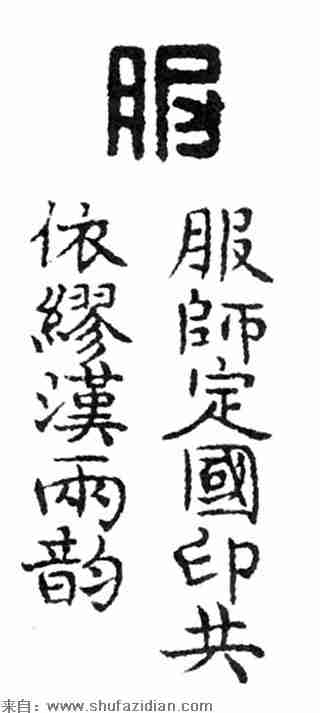 服
服師定國印共
依繆漢兩韵
来自：www.shufazidian.com